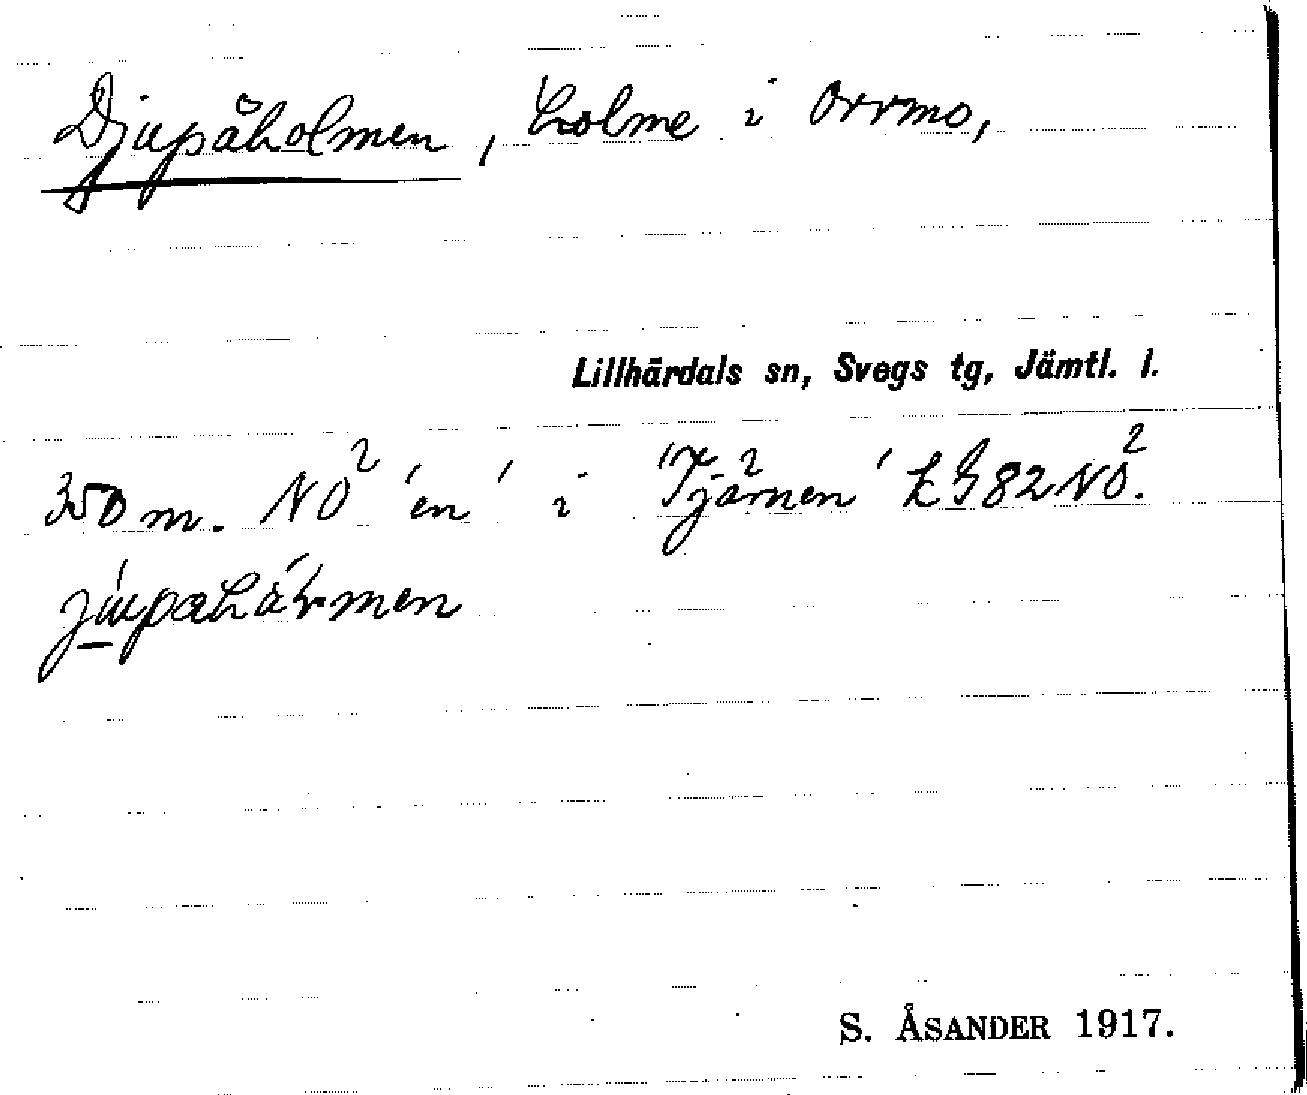 Djupåholmen, holme i Orrmo,
Lillhärdals sn, Svegs tg, Jämtl. l.
350 m. NO² 'en' i 'Tjärnen' LG82NO².
S. ÅSANDER 1917.